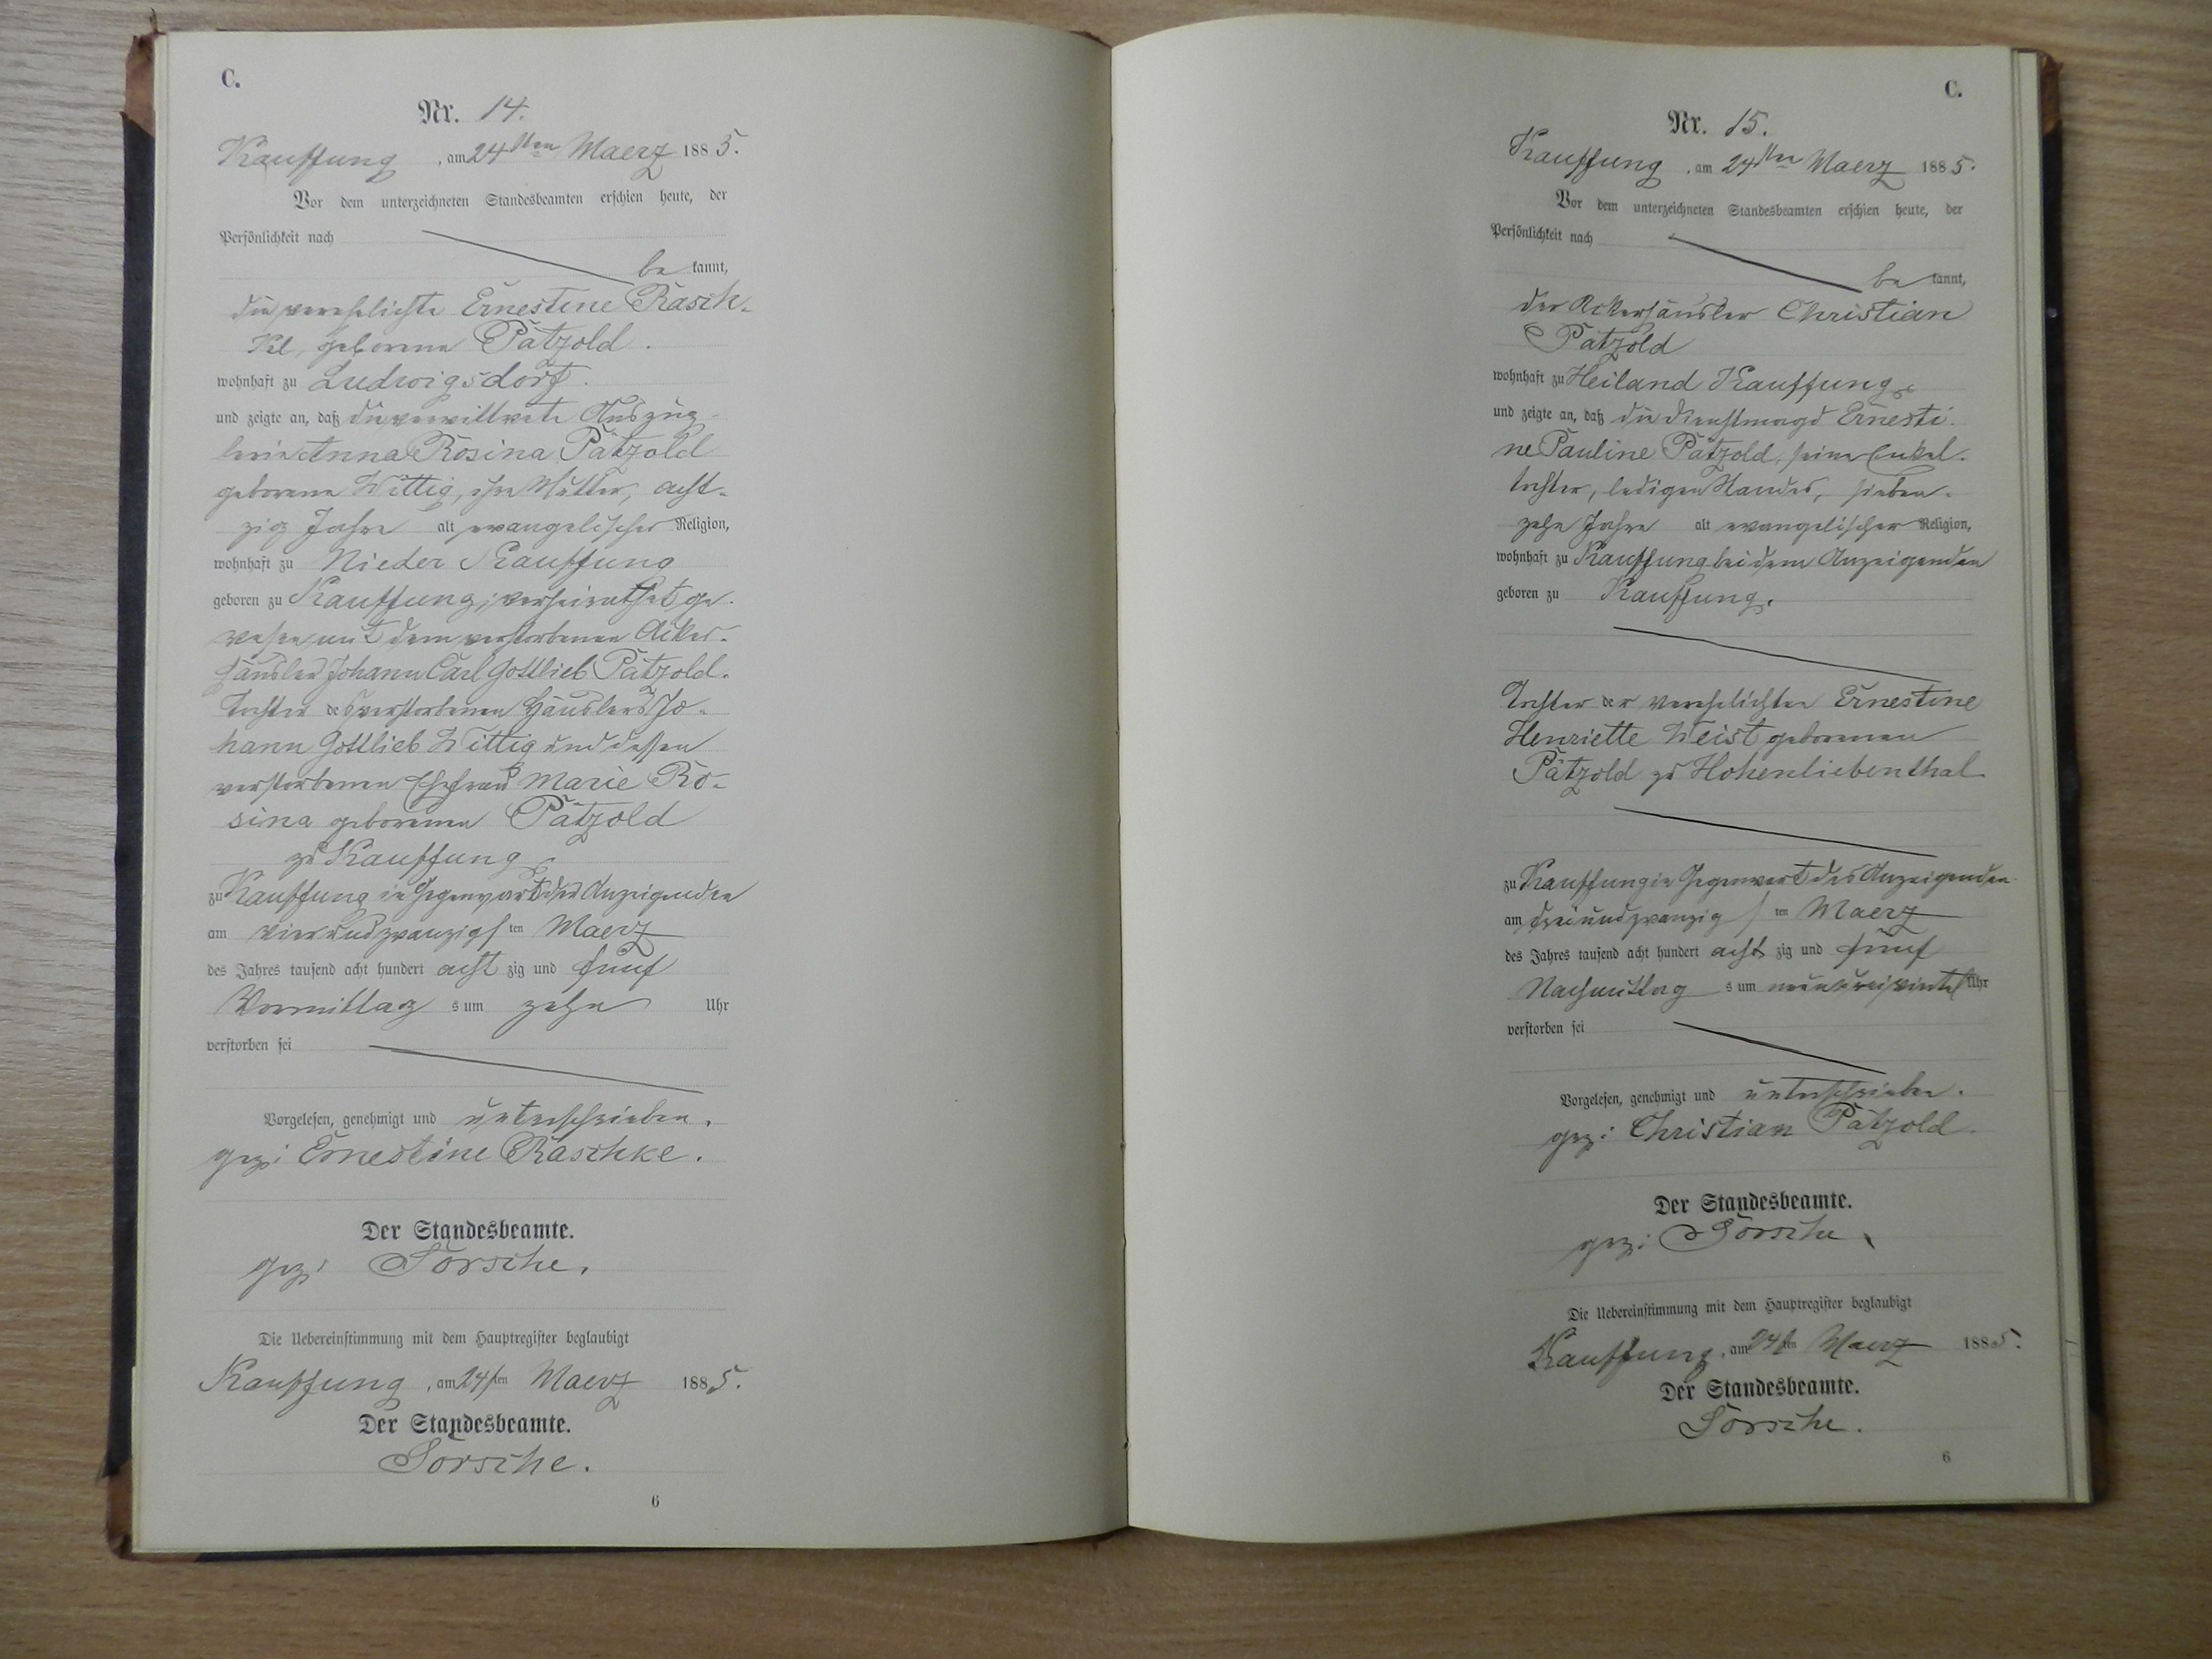 C.
Nr. 14.
Kauffung, am 24ten Maerz 1885.
Vor dem unterzeichneten Standesbeamten erschien heute, der
Persönlichkeit nach
be kannt,
die verehelichte Ernestine Rasch-
ke, geborene Pätzold.
wohnhaft zu Ludwigsdorf.
und zeigte an, daß die verwittwete Auszüg-
lerin Anna Rosina Pätzold
geborene Wittig, ihre Mutter, acht-
zig Jahre alt evangelischer Religion,
wohnhaft zu Nieder Kauffung
geboren zu Kauffung; verheirathet ge-
wesen mit dem verstorbenen Acker-
häusler Johann Carl Gottlieb Pätzold.
Tochter des verstorbenen Häuslers Jo-
hann Gottlieb Wittig und dessen
verstorbenen Ehefrau Marie Ro-
sina geborenen Pätzold
zu Kauffung
zu Kauffung in Gegenwart des Anzeigenden
am vierundzwanzigsten Maerz
des Jahres tausend acht hundert acht zig und fünf
Vormittag s um zehn Uhr
verstorben sei
Vorgelesen, genehmigt und unterschrieben.
gez: Ernestine Raschke.
Der Standesbeamte.
gez: Sorsche.
Die Uebereinstimmung mit dem Hauptregister beglaubigt
Kauffung, am 24sten Maerz 1885.
Der Standesbeamte.
Sorsche.
6
C.
Nr. 15.
Kauffung, am 24ten Maerz 1885.
Vor dem unterzeichneten Standesbeamten erschien heute, der
Persönlichkeit nach
be kannt,
der Ackerhäusler Christian
Pätzold
wohnhaft zu Heiland Kauffung
und zeigte an, daß die Dienstmagd Ernesti-
ne Pauline Pätzold, seine Enkel-
tochter, ledigen Standes, sieben-
zehn Jahre alt evangelischer Religion,
wohnhaft zu Kauffung bei dem Anzeigenden
geboren zu Kauffung.
Tochter der verehelichten Ernestine
Henriette Weist geborenen
Pätzold zu Hohenliebenthal
zu Kauffung in Gegenwart des Anzeigenden
am dreiundzwanzigsten Maerz
des Jahres tausend acht hundert acht zig und fünf
Nachmittag s um neundreiviertel Uhr
verstorben sei
Vorgelesen, genehmigt und unterschrieben.
gez: Christian Pätzold.
Der Standesbeamte.
gez: Sorsche.
Die Uebereinstimmung mit dem Hauptregister beglaubigt
Kauffung, am 24sten Maerz 1885.
Der Standesbeamte.
Sorsche.
6